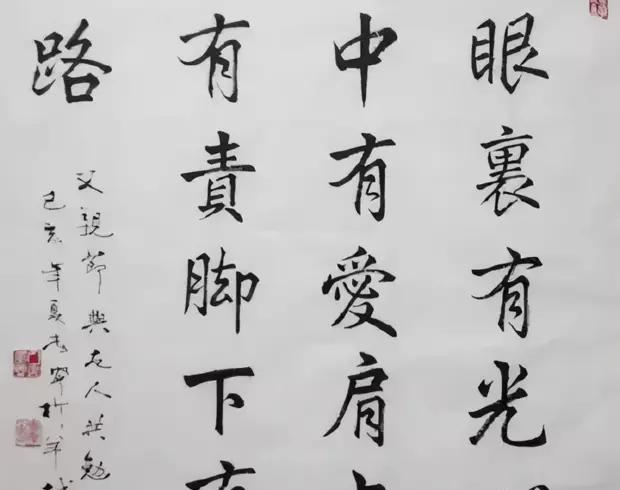 眼裏有光
中有愛肩
有責脚下有
路
父親節與友人共勉
己亥年夏